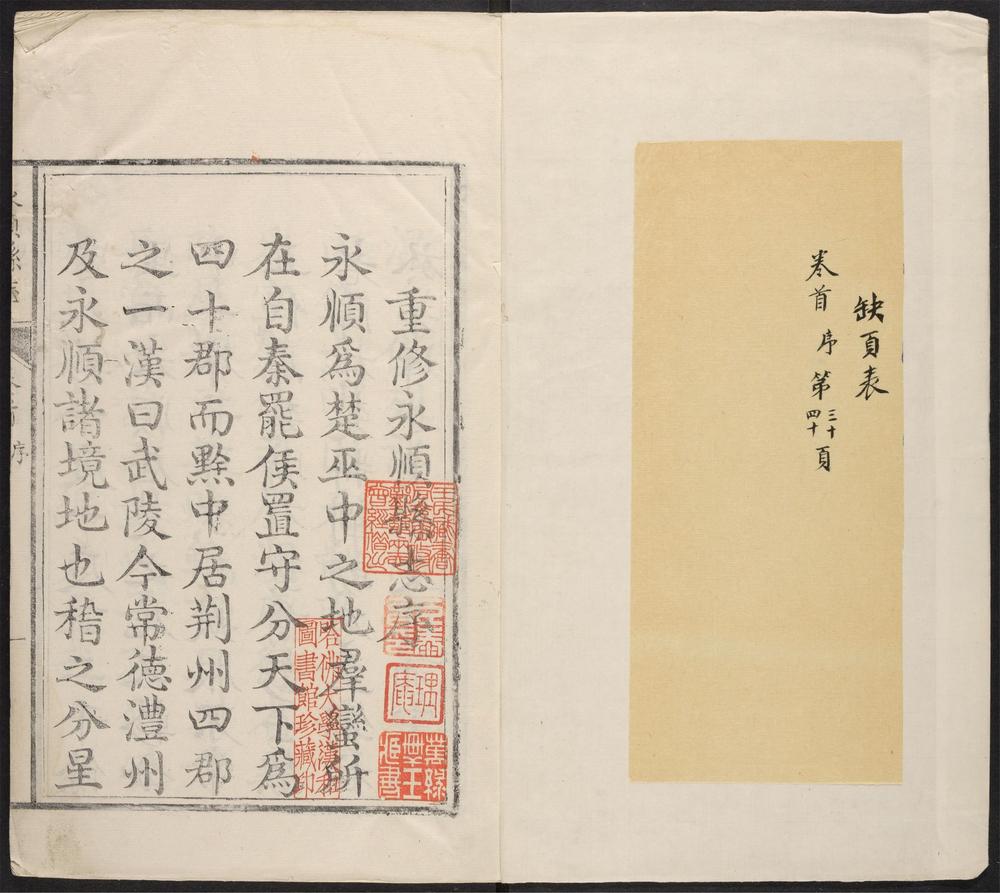 缺頁表
卷首 序 第三十四十頁
重修永順縣志序
永順爲楚巫中之地羣蠻所
在自秦罷侯置守分天下爲
四十郡而黔中居荆州四郡
之一漢曰武陵今常德澧州
及永順諸境地也稽之分星
哈佛大學漢和
圖書館珍藏印
序